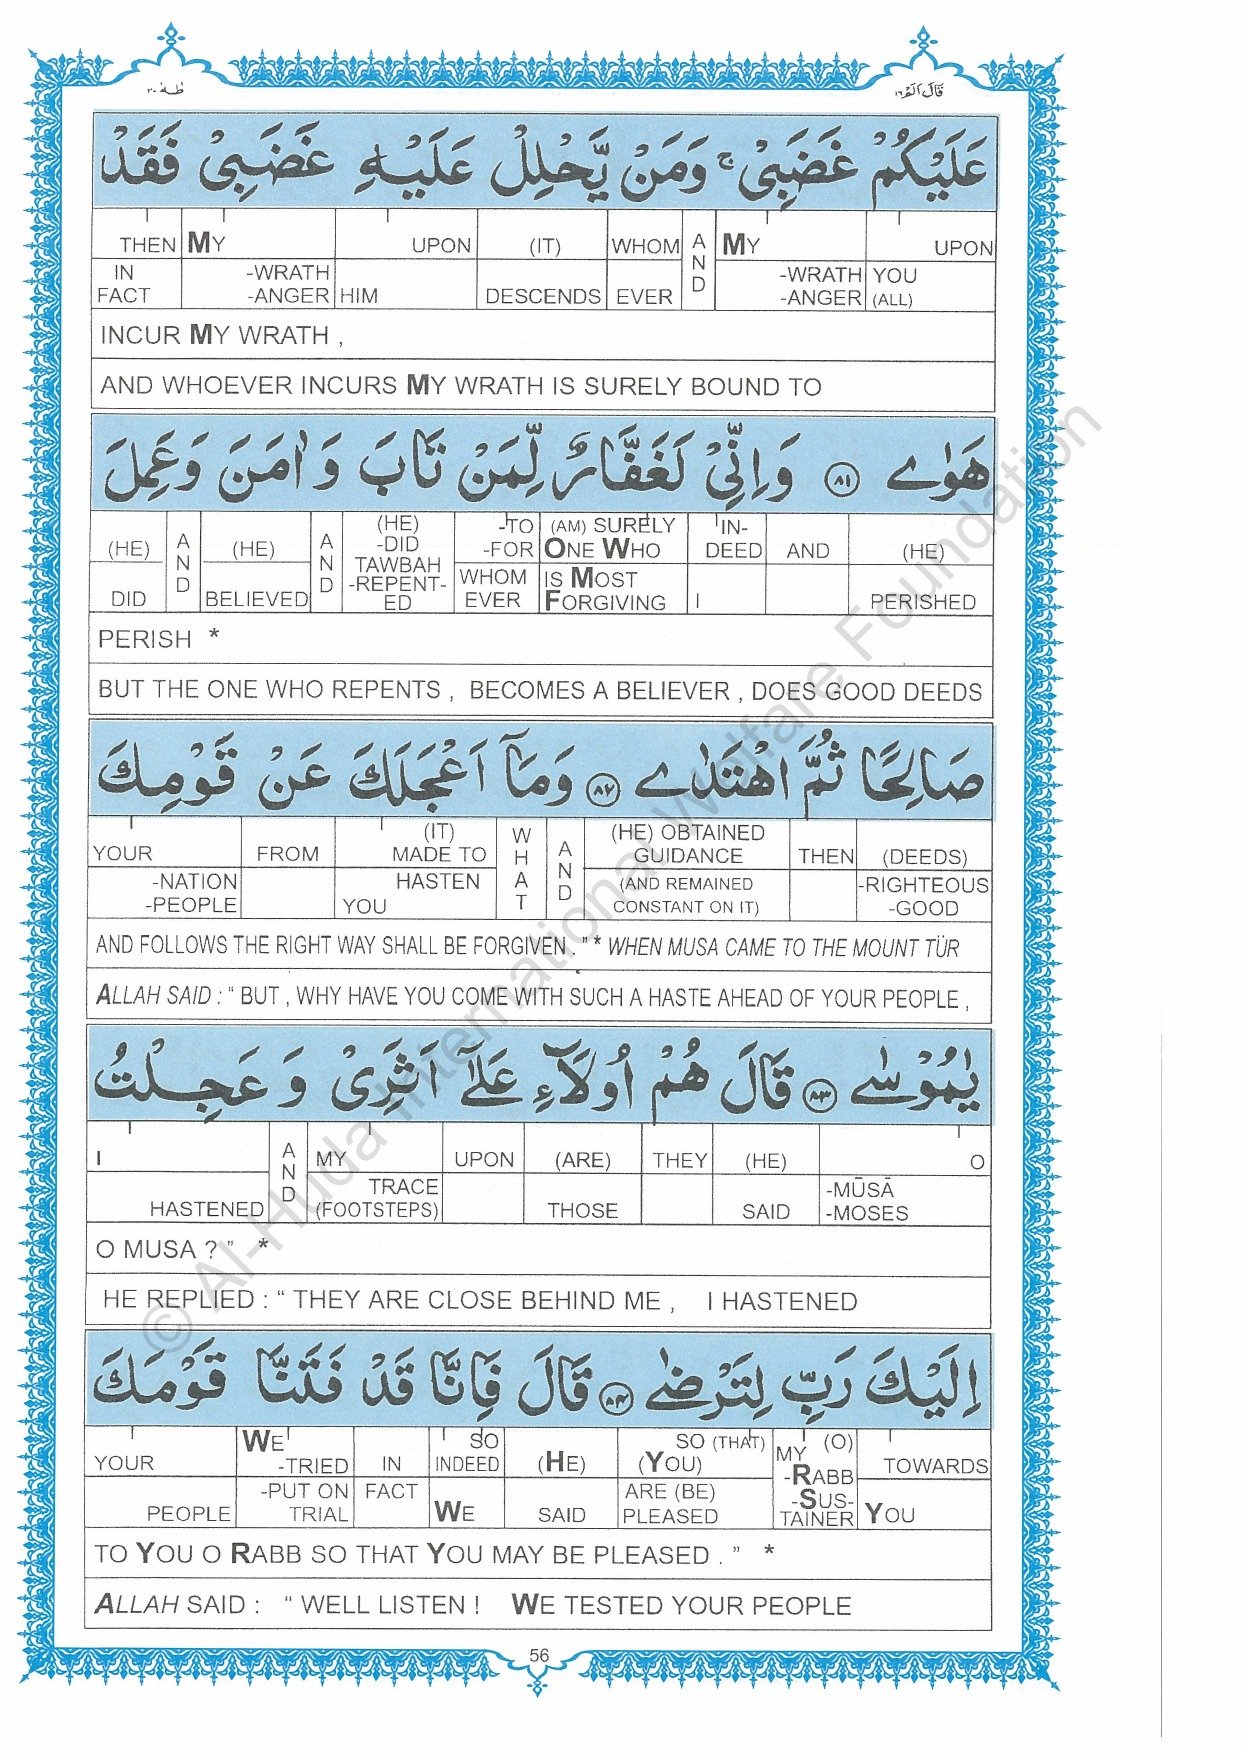 طٰهٰ ٢٠
قَالَ اَلَمْ ١٦
عَلَيْكُمْ غَضَبِيْ ۚ وَمَنْ يَّحْلِلْ عَلَيْهِ غَضَبِيْ فَقَدْ
THEN MY UPON (IT) WHOM AND MY UPON
IN FACT -WRATH -ANGER HIM DESCENDS EVER -WRATH -ANGER YOU (ALL)
INCUR MY WRATH ,
AND WHOEVER INCURS MY WRATH IS SURELY BOUND TO
هَوٰى ٨١ وَاِنِّيْ لَغَفَّارٌ لِّمَنْ تَابَ وَاٰمَنَ وَعَمِلَ
(HE) AND (HE) AND (HE) -DID TAWBAH -REPENT-ED -TO -FOR (AM) SURELY ONE WHO IN-DEED AND (HE)
DID BELIEVED WHOM EVER IS MOST FORGIVING I PERISHED
PERISH *
BUT THE ONE WHO REPENTS , BECOMES A BELIEVER , DOES GOOD DEEDS
صَالِحًا ثُمَّ اهْتَدٰى ٨٢ وَمَآ اَعْجَلَكَ عَنْ قَوْمِكَ
YOUR FROM (IT) MADE TO WHAT AND (HE) OBTAINED GUIDANCE THEN (DEEDS)
-NATION -PEOPLE HASTEN YOU (AND REMAINED CONSTANT ON IT) -RIGHTEOUS -GOOD
AND FOLLOWS THE RIGHT WAY SHALL BE FORGIVEN . ” * WHEN MUSA CAME TO THE MOUNT TÜR
ALLAH SAID : “ BUT , WHY HAVE YOU COME WITH SUCH A HASTE AHEAD OF YOUR PEOPLE ,
يٰمُوْسٰى ٨٣ قَالَ هُمْ اُولَآءِ عَلٰٓى اَثَرِيْ وَعَجِلْتُ
I AND MY UPON (ARE) THEY (HE) O
HASTENED TRACE (FOOTSTEPS) THOSE SAID -MŪSĀ -MOSES
O MUSA ? ” *
HE REPLIED : “ THEY ARE CLOSE BEHIND ME , I HASTENED
اِلَيْكَ رَبِّ لِتَرْضٰى ٨٤ قَالَ فَاِنَّا قَدْ فَتَنَّا قَوْمَكَ
YOUR WE -TRIED IN SO INDEED (HE) SO (THAT) (YOU) MY (O) -RABB -SUS-TAINER TOWARDS
PEOPLE -PUT ON TRIAL FACT WE SAID ARE (BE) PLEASED YOU
TO YOU O RABB SO THAT YOU MAY BE PLEASED . ” *
ALLAH SAID : “ WELL LISTEN ! WE TESTED YOUR PEOPLE
56
© Al-Huda International Welfare Foundation